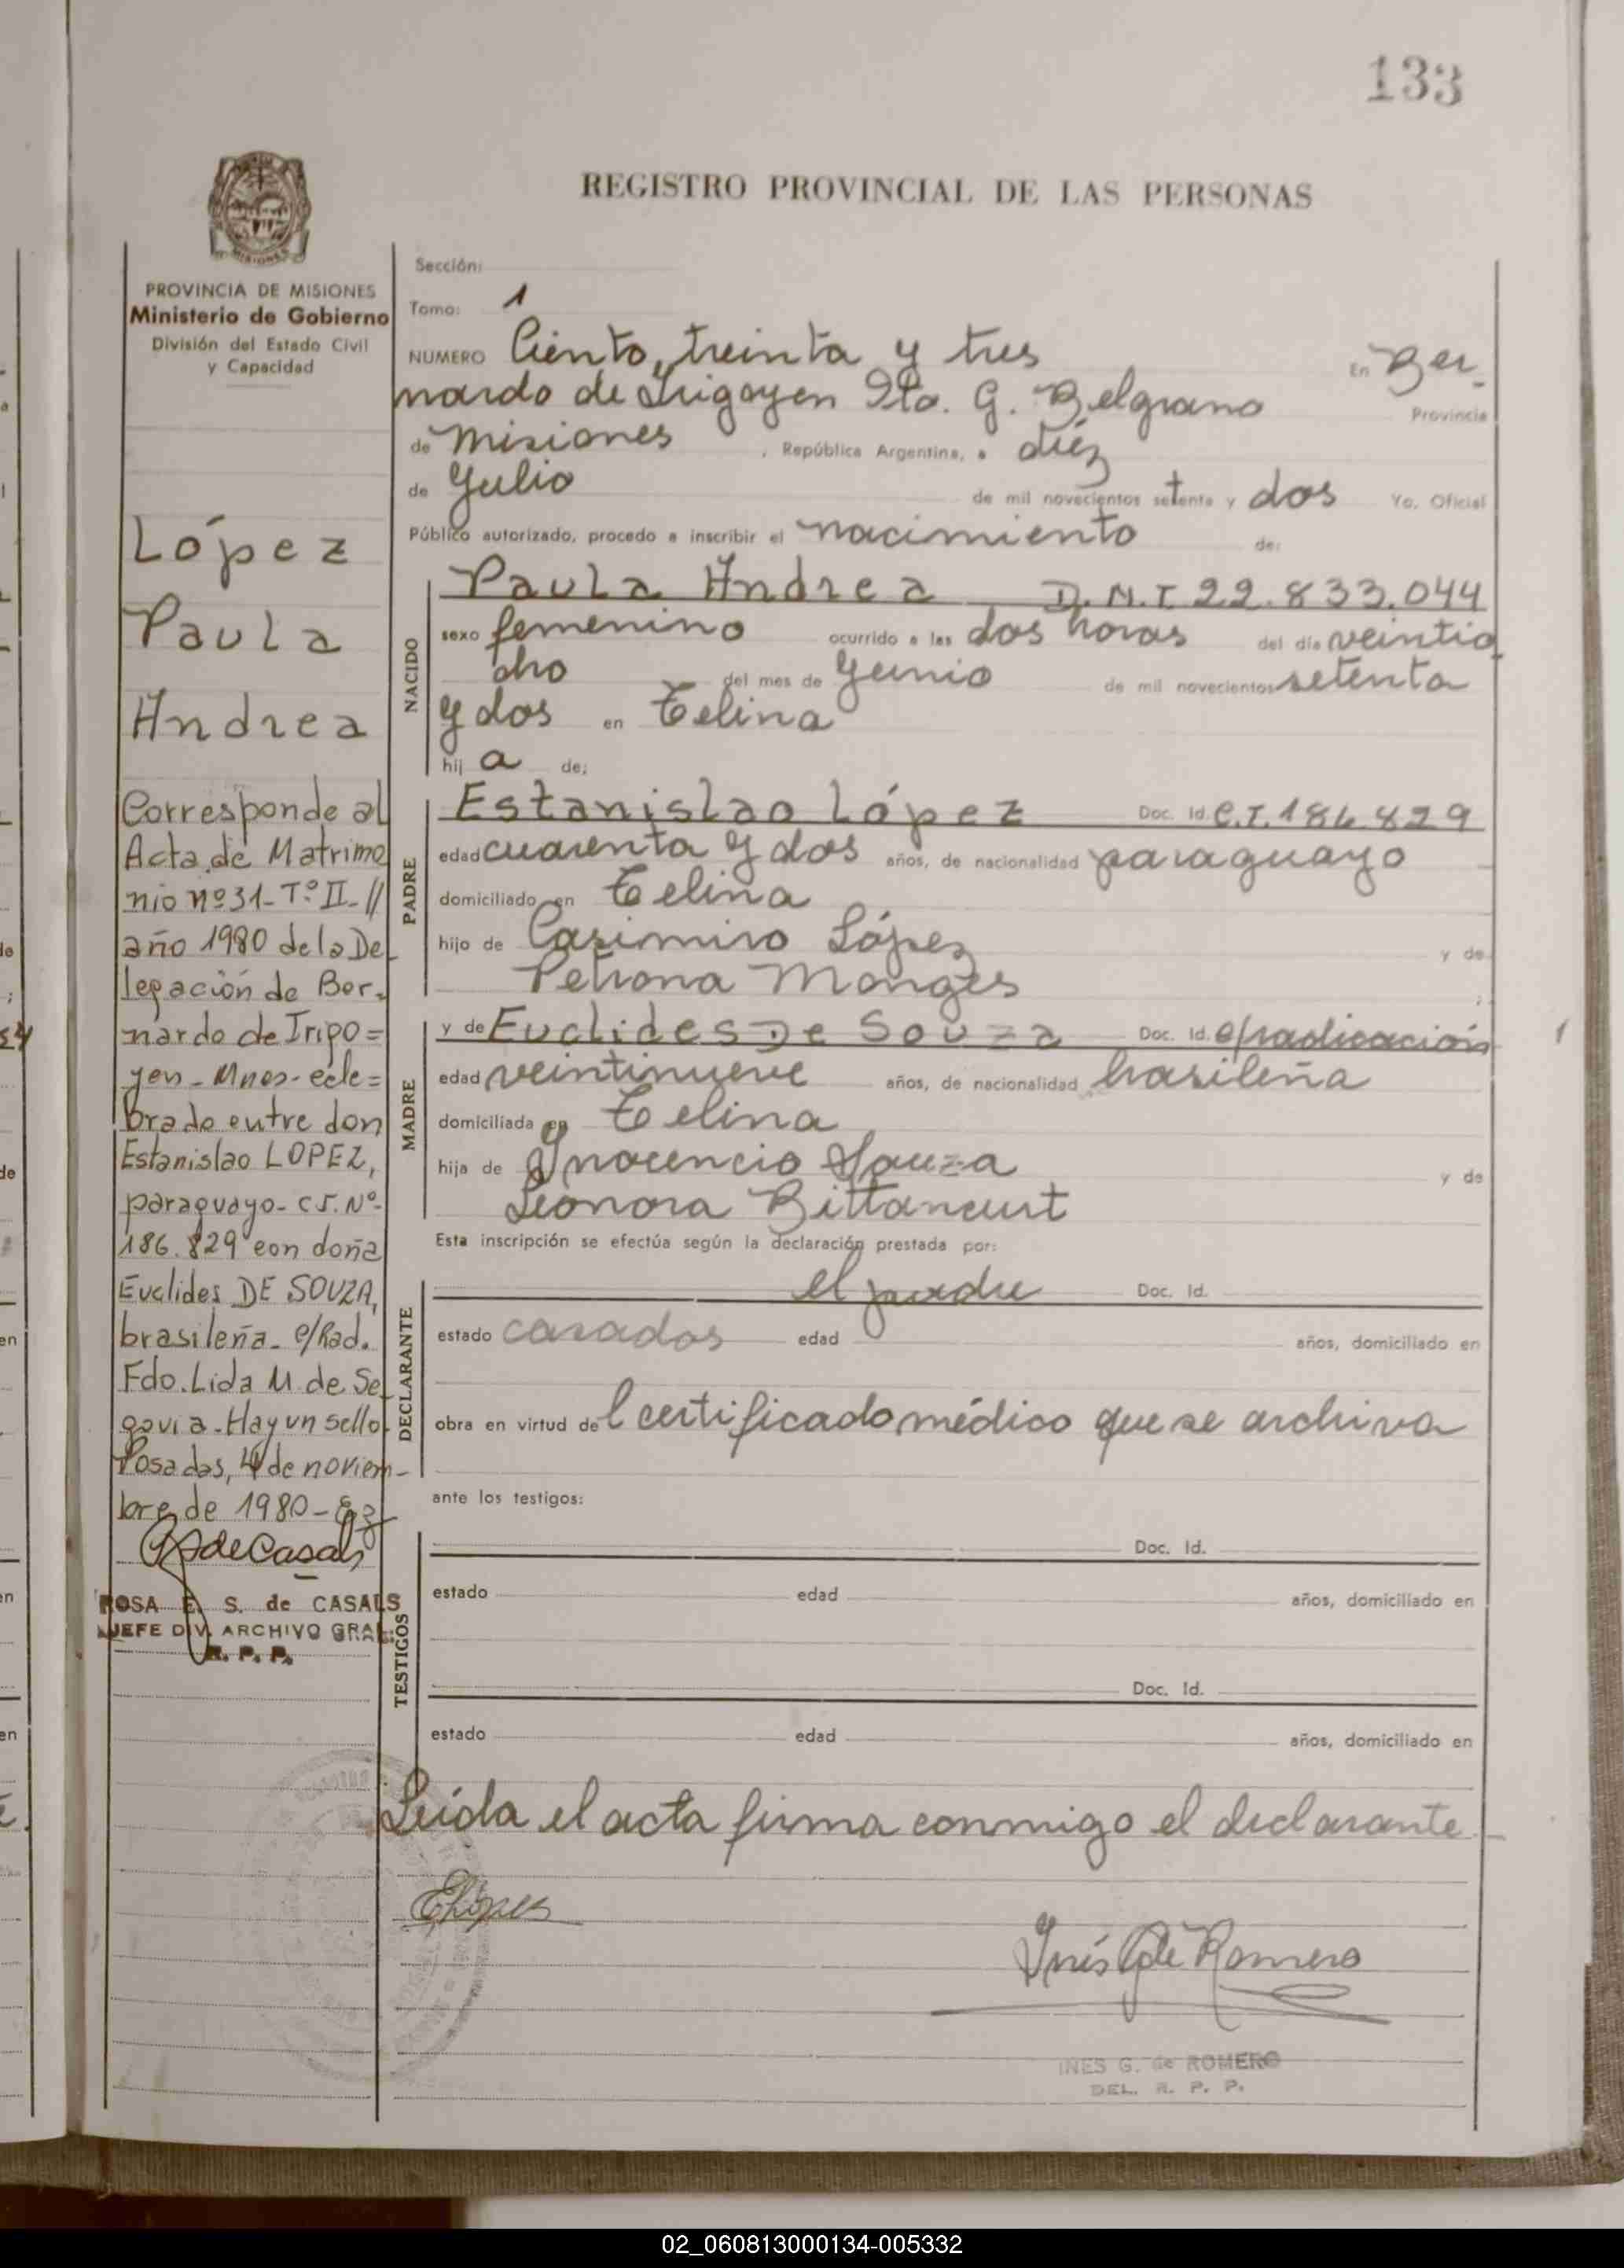 133
REGISTRO PROVINCIAL DE LAS PERSONAS
MISIONES
PROVINCIA DE MISIONES
Ministerio de Gobierno
División del Estado Civil
y Capacidad
López
Paula
Andrea
Corresponde al
Acta de Matrimo
nio nº 31- Tº II- //
año 1980 de la De
legación de Ber-
nardo de Irigo=
yen - Mnes- cele=
brado entre don
Estanislao LOPEZ,
paraguayo- C.I. Nº-
186.829 con doña
Euclides DE SOUZA,
brasileña- e/Rad.
Fdo. Lida M. de Se
govia - Hay un sello-
Posadas, 4 de noviem-
bre de 1980-
ROSA E. S. de CASALS
JEFE DIV. ARCHIVO GRAL.
R. P. P.
Sección:
Tomo: 1
NUMERO Ciento, treinta y tres En Ber-
nardo de Irigoyen Dto. G. Belgrano Provincia
de Misiones , República Argentina, a diéz
de Julio de mil novecientos setenta y dos Yo. Oficial
Público autorizado, procedo a inscribir el nacimiento de:
NACIDO
Paula Andrea D.N.I 22.833.044
sexo femenino ocurrido a las dos horas del día veintio
cho del mes de Junio de mil novecientos setenta
y dos en Celina
hij a de;
PADRE
Estanislao López Doc. Id. C.I. 186.829
edad cuarenta y dos años, de nacionalidad paraguayo
domiciliado en Celina
hijo de Casimiro López y de
Petrona Monges ;
MADRE
y de Euclides De Souza Doc. Id. e/radicación
edad veintinueve años, de nacionalidad brasileña
domiciliada en Celina
hija de Inocencio Souza y de
Leonora Bittancurt
Esta inscripción se efectúa según la declaración prestada por:
DECLARANTE
el padre Doc. Id.
estado casados edad años, domiciliado en
obra en virtud de l certificado médico que se archiva
ante los testigos:
TESTIGOS
Doc. Id.
estado edad años, domiciliado en
Doc. Id.
estado edad años, domiciliado en
Leída el acta firma conmigo el declarante
ELópez
Inés G de Romero
INES G. de ROMERO
DEL. R. P. P.
02_060813000134-005332